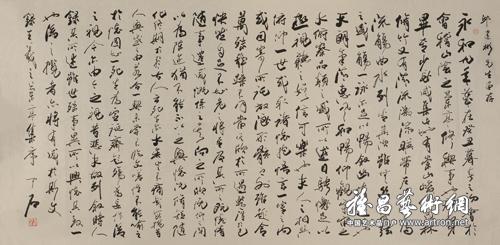 先生雅存
永和九年歲在癸丑暮春之初會于
會稽山陰之蘭亭修禊事也群賢
畢至少長咸集此地有崇山峻領茂林
修竹又有清流激湍映帶左右引以為
流觴曲水列坐其次雖無絲竹管弦
之盛一觴一詠亦足以暢敘幽情是日也
天朗氣清惠風和暢仰觀宇宙之大俯察
品類之盛所以遊目騁懷足以極視聽之娛信可樂也夫人之相與
俯仰一世或取諸懷抱悟言一室之內
或因寄所託放浪形骸之外雖趣舍
萬殊靜躁不同當其欣於所遇暫得於己
快然自足不知老之將至及其所之既倦情
隨事遷感慨係之矣向之所欣俯仰之間
以為陳迹猶不能不以之興懷況修短隨
化終期於盡古人云死生亦大矣豈不痛哉每覽昔
人興感之由若合一契未嘗不臨文嗟悼不能喻之
於懷固知一死生為虛誕齊彭殤為妄作後
之視今亦由今之視昔悲夫故列敘時人
錄其所述雖世殊事異所以興懷其致一
也後之覽者亦將有感於斯文
錄王羲之蘭亭集序 丁石
雅昌艺术网
中国艺术品门户 www.artron.net